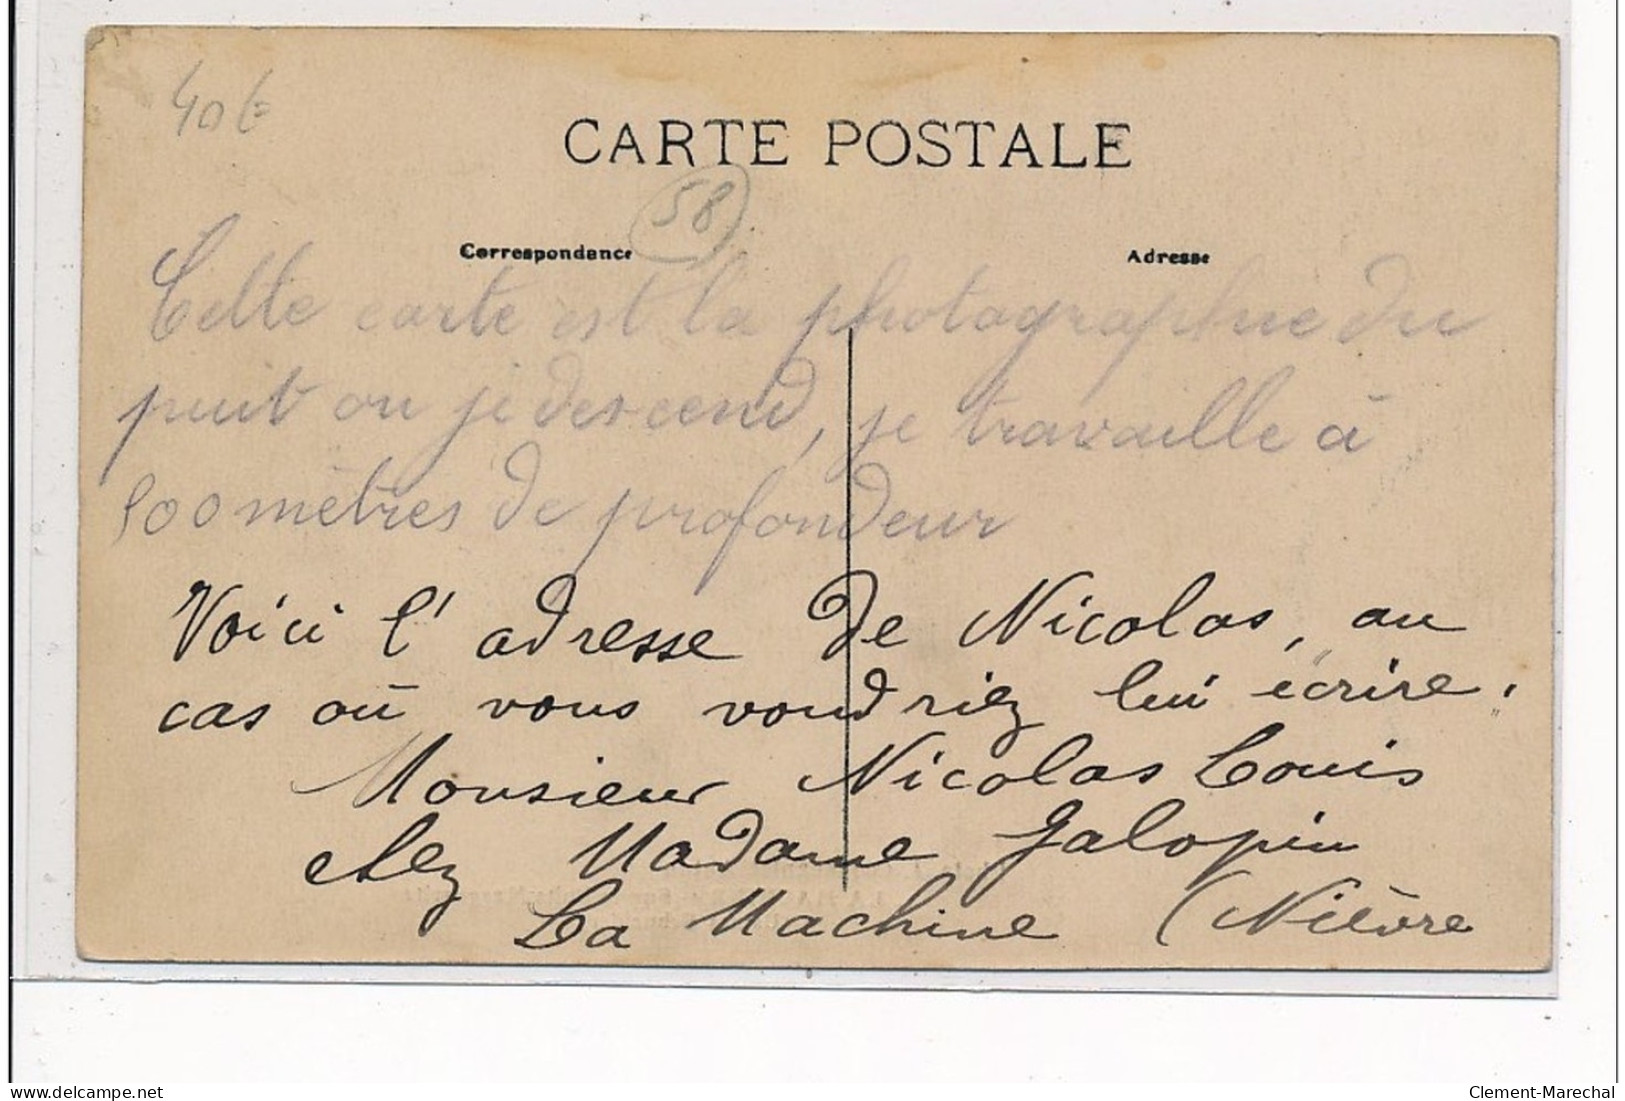 40 €
CARTE POSTALE
58
Correspondance
Adresse
Cette carte est la photographie du
puit ou je descend, je travaille à
500 mètres de profondeur
Voici l'adresse de Nicolas, au
cas où vous voudriez lui écrire.
Monsieur Nicolas Louis
chez Madame Galopin
La Machine (Nièvre
delcampe.net
Clement-Marechal